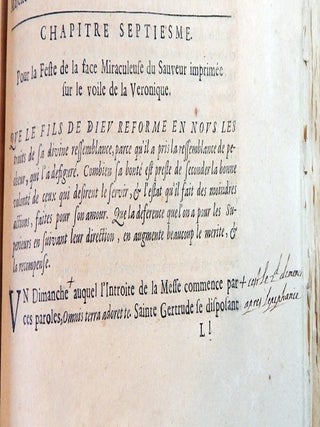 CHAPITRE SEPTIESME.
Pour la Feste de la face Miraculeuse du Sauveur imprimée
sur le voile de la Veronique.
QUE LE FILS DE DIEV REFORME EN NOVS LES
traits de sa divine ressemblance, parce qu'il a pris la ressemblance de pe-
cheur, qui l'a defiguré. Combien sa bonté est preste de seconder la bonne
volonté de ceux qui desirent le servir, & l'estat qu'il fait des moindres
actions, faites pour son amour. Que la deference que l'on a pour les Su-
perieurs en suivant leur direction, en augmente beaucoup le merite, &
la recompense.
VN Dimanche + auquel l'Introite de la Messe commence par
ces paroles, Omnis terra adoret te. Sainte Gertrude se disposant
+ cest le 2d dimence
apres l'epiphanie
L l